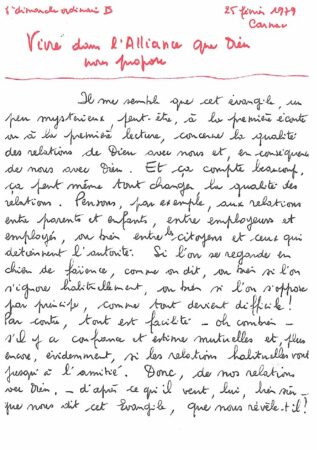 8e dimanche ordinaire B
25 février 1979
Carnac
Vivre dans l'Alliance que Dieu
nous propose
Il me semble que cet évangile, un
peu mystérieux peut-être, à la première écoute
ou à la première lecture, concerne la qualité
des relations de Dieu avec nous et, en conséquence
de nous avec Dieu. Et ça compte beaucoup,
ça peut même tout changer, la qualité des
relations. Pensons, par exemple, aux relations
entre parents et enfants, entre employeurs et
employés, ou bien entre les citoyens et ceux qui
détiennent l'autorité. Si l'on se regarde en
chien de faïence, comme on dit, ou bien si l'on
s'ignore habituellement, ou bien si l'on s'oppose
par principe, comme tout devient difficile !
Par contre, tout est facilité - oh combien -
s'il y a confiance et estime mutuelles et, plus
encore, évidemment, si les relations habituelles vont
jusqu'à l'amitié. Donc, de nos relations
avec Dieu, - d'après ce qu'il veut, lui, bien sûr -
que nous dit cet Evangile, que nous révèle-t-il ?